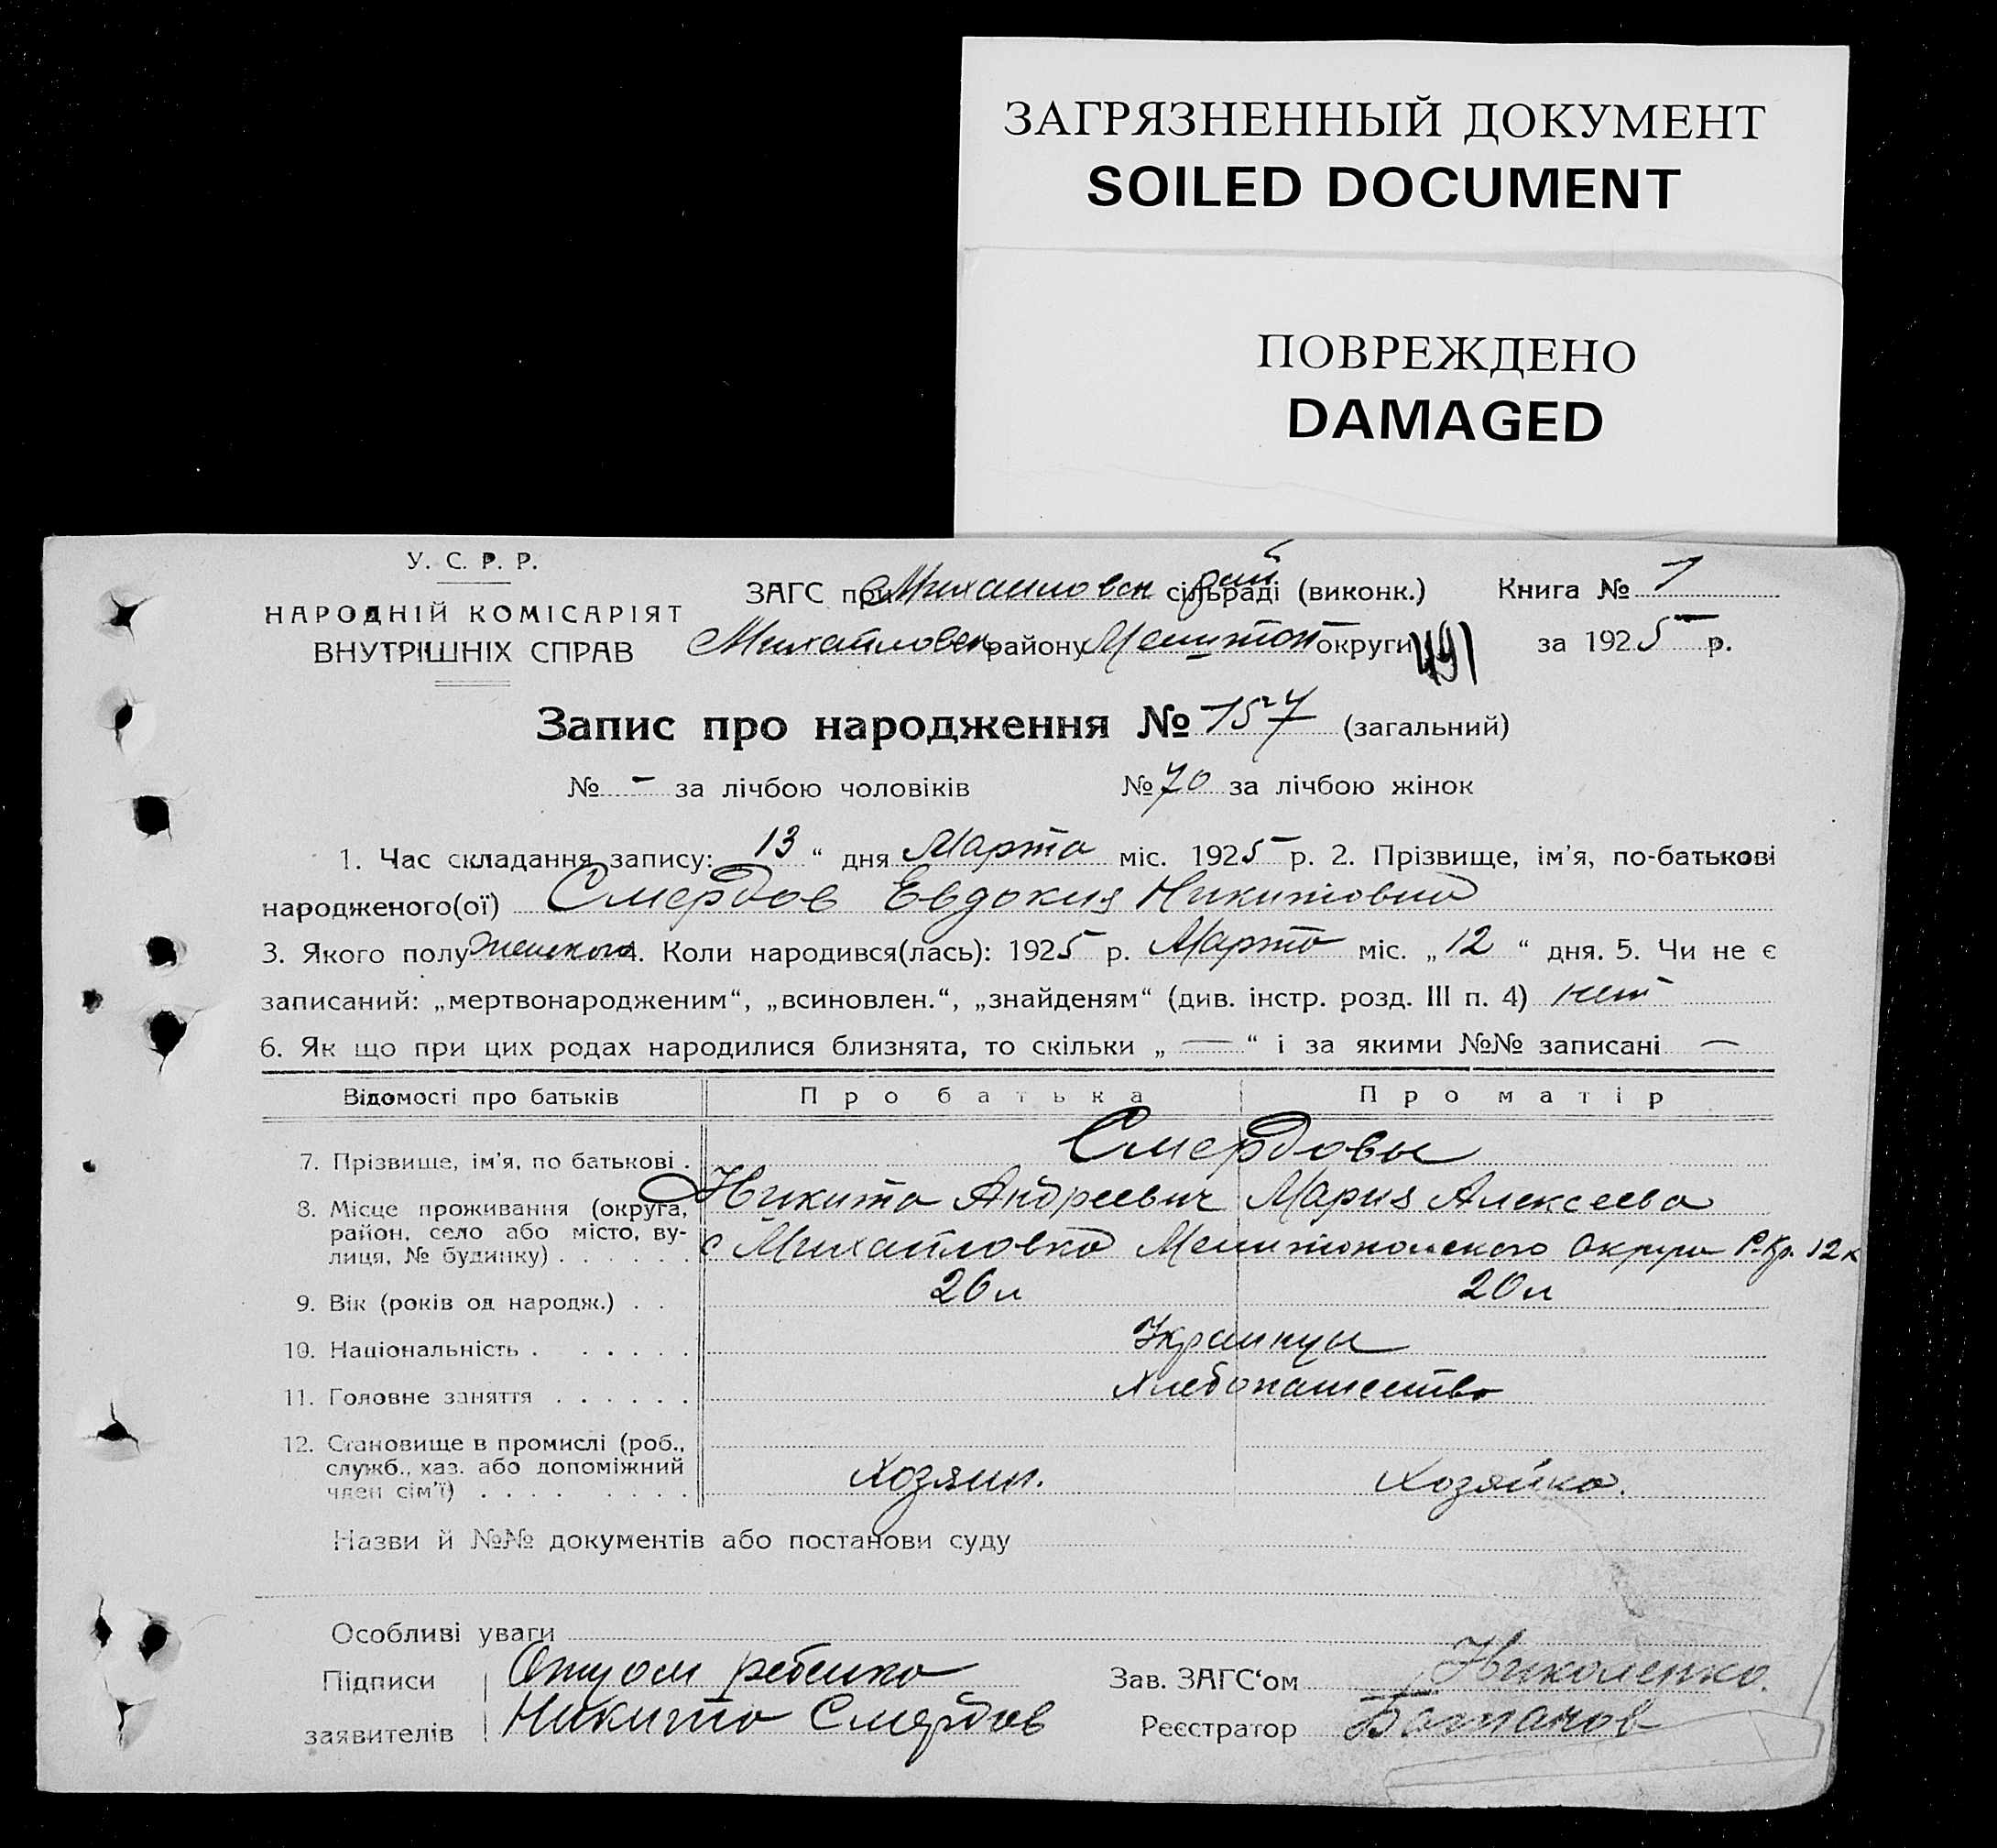 ЗАГРЯЗНЕННЫЙ ДОКУМЕНТ
SOILED DOCUMENT
ПОВРЕЖДЕНО
DAMAGED
У. С. Р. Р.
НАРОДНІЙ КОМІСАРІЯТ
ВНУТРІШНІХ СПРАВ
ЗАГС при Михайловск рай сільраді (виконк.) Книга № 1
Михайловск району Мелитоп округи 491 за 1925 р.
Запис про народження № 157 (загальний)
№ - за лічбою чоловіків № 70 за лічбою жінок
1. Час складання запису: 13 “ дня Марта міс. 1925 р. 2. Прізвище, ім’я, по-батькові
народженого(ої) Смердов Евдокия Никитовна
3. Якого полу женского 4. Коли народився(лась): 1925 р. Марта міс. „ 12 “ дня. 5. Чи не є
записаний: „мертвонародженим“, „всиновлен.“, „знайденям“ (див. інстр. розд. III п. 4) нет
6. Як що при цих родах народилися близнята, то скільки „ — “ і за якими №№ записані —
Відомості про батьків Про батька Про матір
7. Прізвище, ім’я, по батькові . Смердовы
Никита Андреевич Мария Алексеева
8. Місце проживання (округа, район, село або місто, ву-
лиця, № будинку) . . . . . . с Михайловка Мелитопольского Округа Р-Кр. 12 к
9. Вік (років од народж.) . . 26 л 20 л
10. Національність . . . . . . Украинцы
11. Головне заняття . . . . . . Хлебопашество
12. Становище в промислі (роб.,
служб., хаз. або допоміжний
член сім’ї) . . . . . . . . Хозяин. Хозяйка.
Назви й №№ документів або постанови суду
Особливі уваги
Підписи Отцом ребенка Зав. ЗАГС‘ом Николенко.
заявителів Никита Смердов Реєстратор